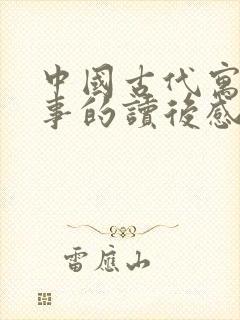 中國古代寓
事的讀後感
雷應山